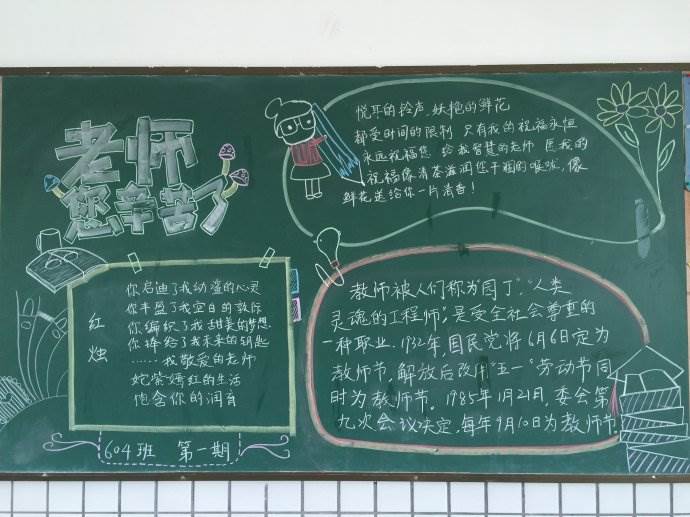 老师
您辛苦了
悦耳的铃声,妖艳的鲜花
都受时间的限制 只有我的祝福永恒
永远祝福您 给我智慧的老师 愿我的
祝福像清茶滋润您干涸的喉咙,像
鲜花送给你一片清香!
红烛
你启迪了我幼稚的心灵
你丰盈了我空白的
你编织了我甜美的梦想
你捧给了我未来的钥匙
……我敬爱的老师
姹紫嫣红的生活
饱含你的润育
604班 第一期
教师被人们称为"园丁"、"人类
灵魂的工程师",是受全社会尊重的
一种职业。1932年,国民党将6月6日定为
教师节,解放后改用"五一"劳动节同
时为教师节。1985年1月21日,委会第
九次会议决定,每年9月10日为教师节